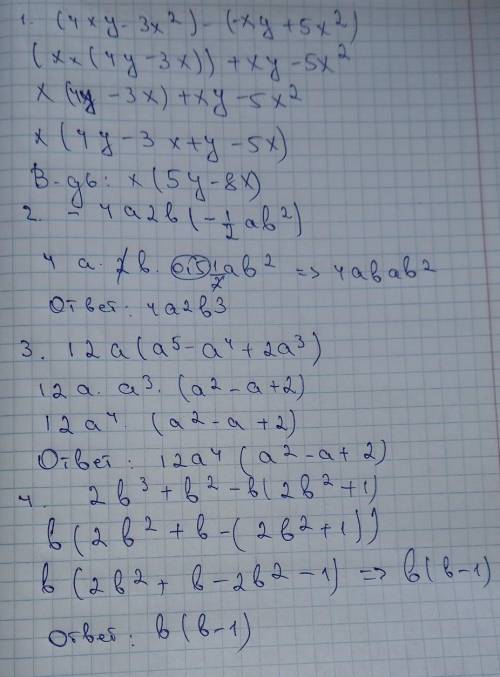 1. (4xy - 3x²) - (-xy + 5x²)
(x × (4y - 3x)) + xy - 5x²
x (4y - 3x) + xy - 5x²
x (4y - 3x + y - 5x)
В-дь: x (5y - 8x)
2. - 4a2b (-1/2 ab²)
4 a · 2b · 1/2 ab² => 4abab²
Ответ: 4a2b3
3. 12a (a⁵ - a⁴ + 2a³)
12a · a³ · (a² - a + 2)
12a⁴ · (a² - a + 2)
Ответ: 12a⁴ (a² - a + 2)
4. 2b³ + b² - b(2b² + 1)
b (2b² + b - (2b² + 1))
b (2b² + b - 2b² - 1) => b(b - 1)
Ответ: b (b - 1)